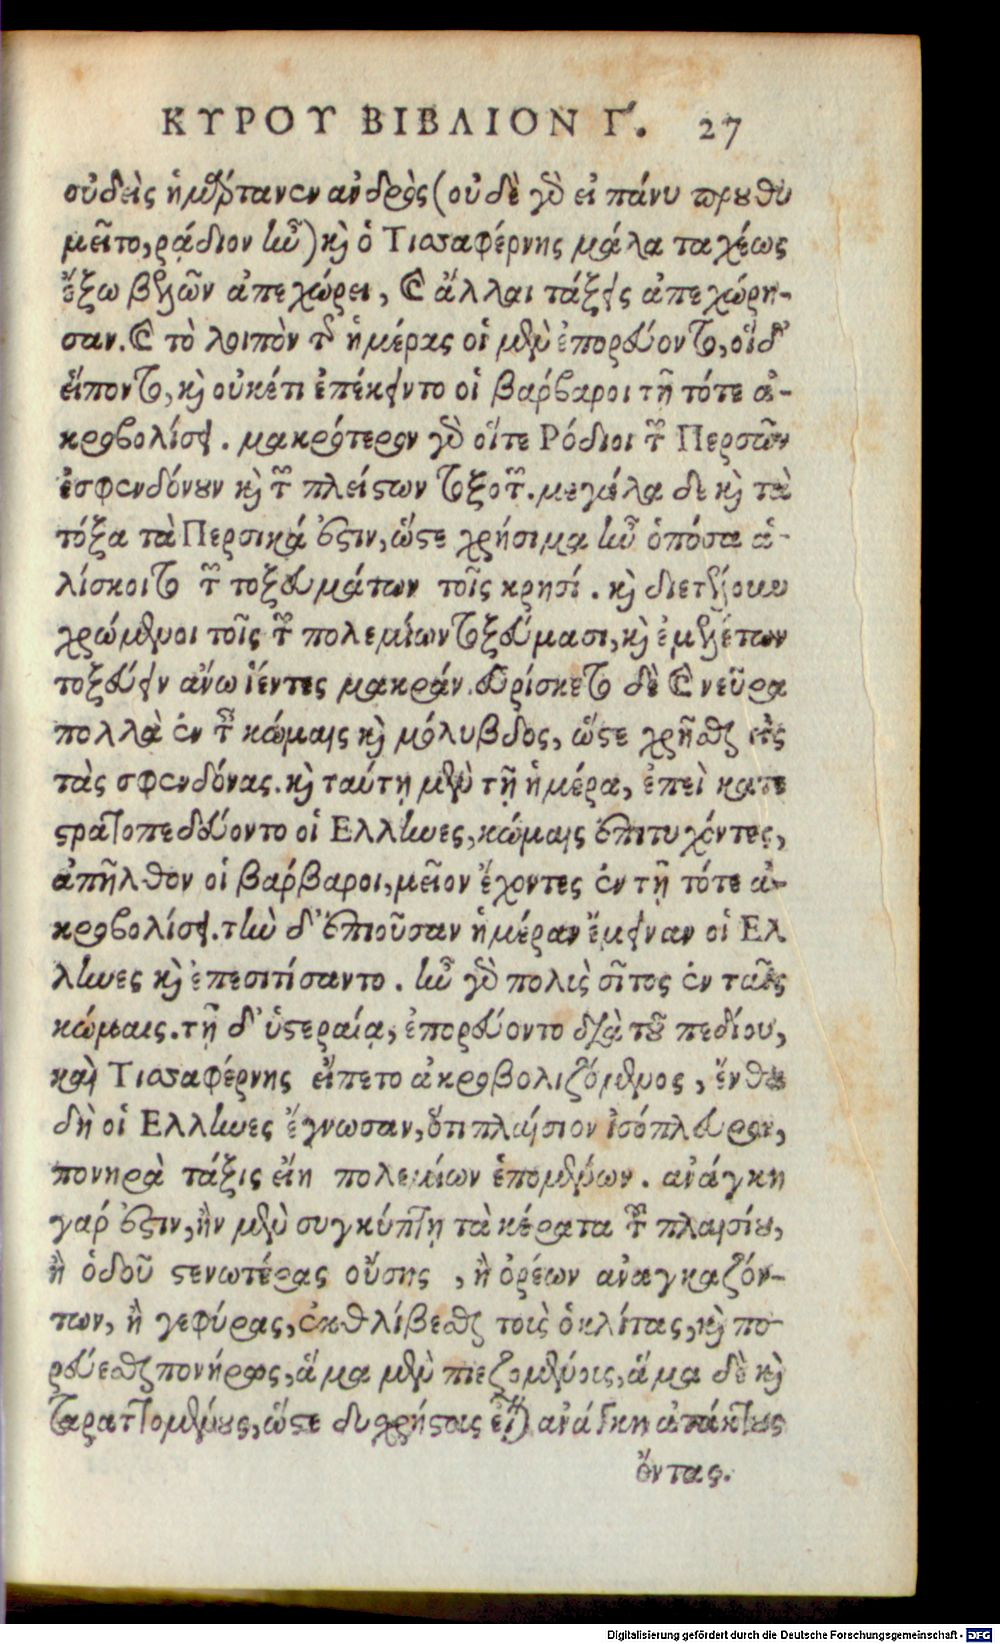 ΚΥΡΟΥ ΒΙΒΛΙΟΝ Γ. 27
οὐδεὶς ἡμάρτανεν ἀνδρὸς (οὐδὲ γὸ εἰ πάνυ προυθυ
μεῖτο, ῥᾴδιον ἦν) κὶ ὁ Τισσαφέρνης μάλα ταχέως
ἔξω βελῶν ἀπεχώρει, καὶ ἄλλαι τάξεις ἀπεχώρη-
σαν. καὶ τὸ λοιπὸν τῆς ἡμέρας οἱ μὲν ἐπορεύοντο, οἱ δ'
εἵποντο, κὶ οὐκέτι ἐπέκειντο οἱ βάρβαροι τῇ τότε ἀ-
κροβολίσει. μακρότερον γὸ οἵτε Ρόδιοι τῶν Περσῶν
ἐσφενδόνουν κὶ τῶν πλείστων τοξοτῶν. μεγάλα δὲ κὶ τὰ
τόξα τὰ Περσικά ἐστιν, ὥστε χρήσιμα ἦν ὁπόσα ἁ-
λίσκοιτο τῶν τοξευμάτων τοῖς κρησί. κὶ διετέλουν
χρώμενοι τοῖς τῶν πολεμίων τοξεύμασι, κὶ ἐμελέτων
τοξεύειν ἄνω ἱέντες μακράν. εὑρίσκετο δὲ καὶ νεῦρα
πολλὰ ἐν ταῖς κώμαις κὶ μόλυβδος, ὥστε χρῆσθαι εἰς
τὰς σφενδόνας. κὶ ταύτῃ μὲν τῇ ἡμέρα, ἐπεὶ κατε
στρατοπεδεύοντο οἱ Ελληνες, κώμαις ἐπιτυχόντες,
ἀπῆλθον οἱ βάρβαροι, μεῖον ἔχοντες ἐν τῇ τότε ἀ-
κροβολίσει. τὴν δ' ἐπιοῦσαν ἡμέραν ἔμειναν οἱ Ελ
ληνες κὶ ἐπεσιτίσαντο. ἦν γὸ πολὺς σῖτος ἐν ταῖς
κώμαις. τῇ δ' ὑστεραίᾳ, ἐπορεύοντο διὰ τοῦ πεδίου,
καὶ Τισσαφέρνης εἵπετο ἀκροβολιζόμενος, ἔνθα
δὴ οἱ Ελληνες ἔγνωσαν, ὅτι πλαίσιον ἰσόπλευρον,
πονηρὰ τάξις εἴη πολεμίων ἑπομένων. ἀνάγκη
γάρ ἐστιν, ἢν μὲν συγκύπτῃ τὰ κέρατα τοῦ πλαισίου,
ἢ ὁδοῦ στενωτέρας οὔσης, ἢ ὀρέων ἀναγκαζόν-
των, ἢ γεφύρας, ἐκθλίβεσθαι τοὺς ὁπλίτας, κὶ πο
ρεύεσθαι πονήρως, ἅμα μὲν πιεζομένους, ἅμα δὲ κὶ
ταραττομένους, ὥστε δυσχρήστους εἶναι ἀνάγκη ἀτάκτους
ὄντας.
Digitalisierung gefördert durch die Deutsche Forschungsgemeinschaft - DFG